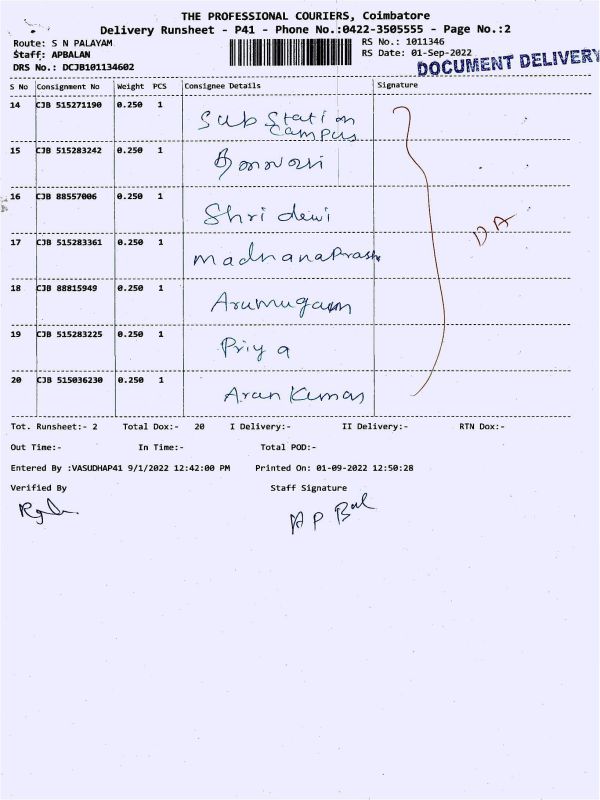 THE PROFESSIONAL COURIERS, Coimbatore
Delivery Runsheet - P41 - Phone No.:0422-3505555 - Page No.:2
Route: S N PALAYAM
RS No.: 1011346
Staff: APBALAN
RS Date: 01-Sep-2022
DRS No.: DCJB101134602
DOCUMENT DELIVERY
S No Consignment No Weight PCS Consignee Details Signature
14 CJB 515271190 0.250 1 Sub Station
Campus
15 CJB 515283242 0.250 1
16 CJB 88557006 0.250 1 Shri dewi
17 CJB 515283361 0.250 1 MadhanaPrasth
DA
18 CJB 88815949 0.250 1 Arumugam
19 CJB 515283225 0.250 1 Priya
20 CJB 515036230 0.250 1 Arun Kumar
Tot. Runsheet:- 2 Total Dox:- 20 I Delivery:- II Delivery:- RTN Dox:-
Out Time:- In Time:- Total POD:-
Entered By :VASUDHAP41 9/1/2022 12:42:00 PM Printed On: 01-09-2022 12:50:28
Verified By Staff Signature
A P Bal